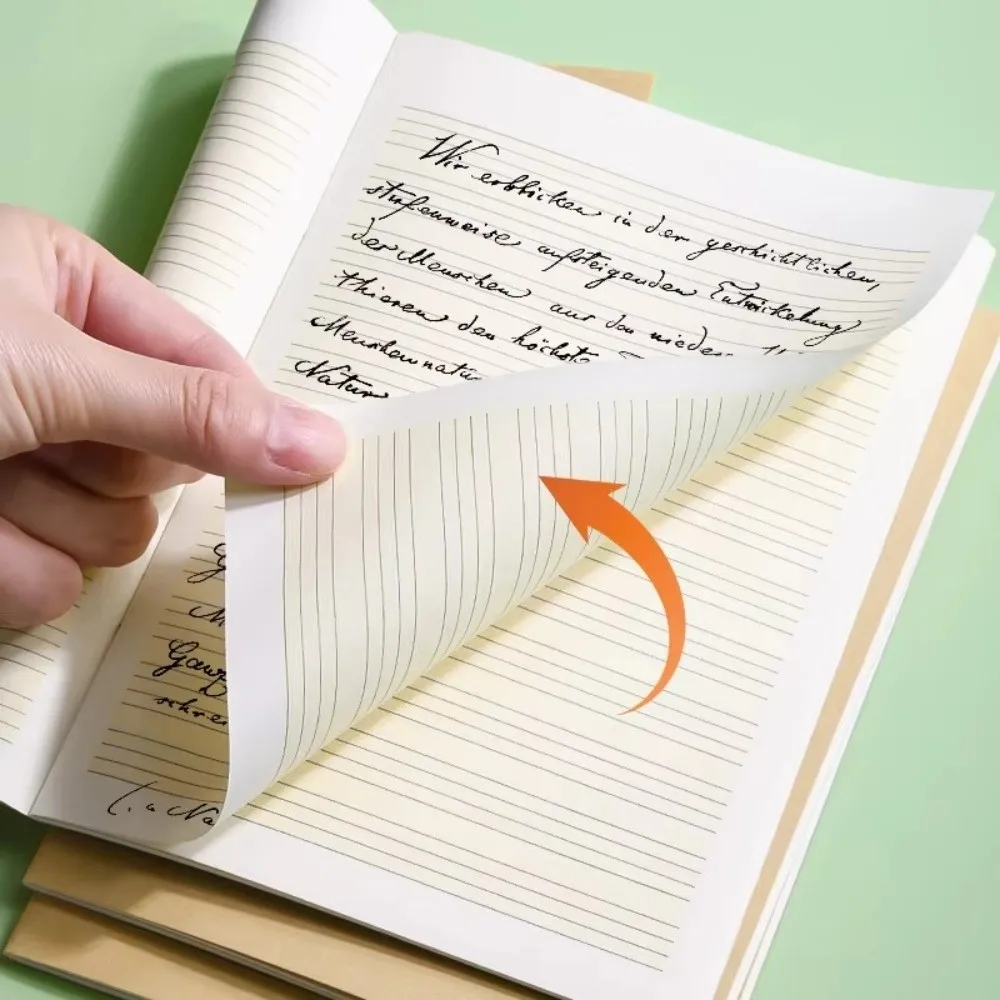 Wir erblicken in der geschichtlichen,
stufenweise aufsteigenden Entwickelung
der Menschen aus den niederen
Thieren den höchste
Menschennatur
Natur
Ganz
schre